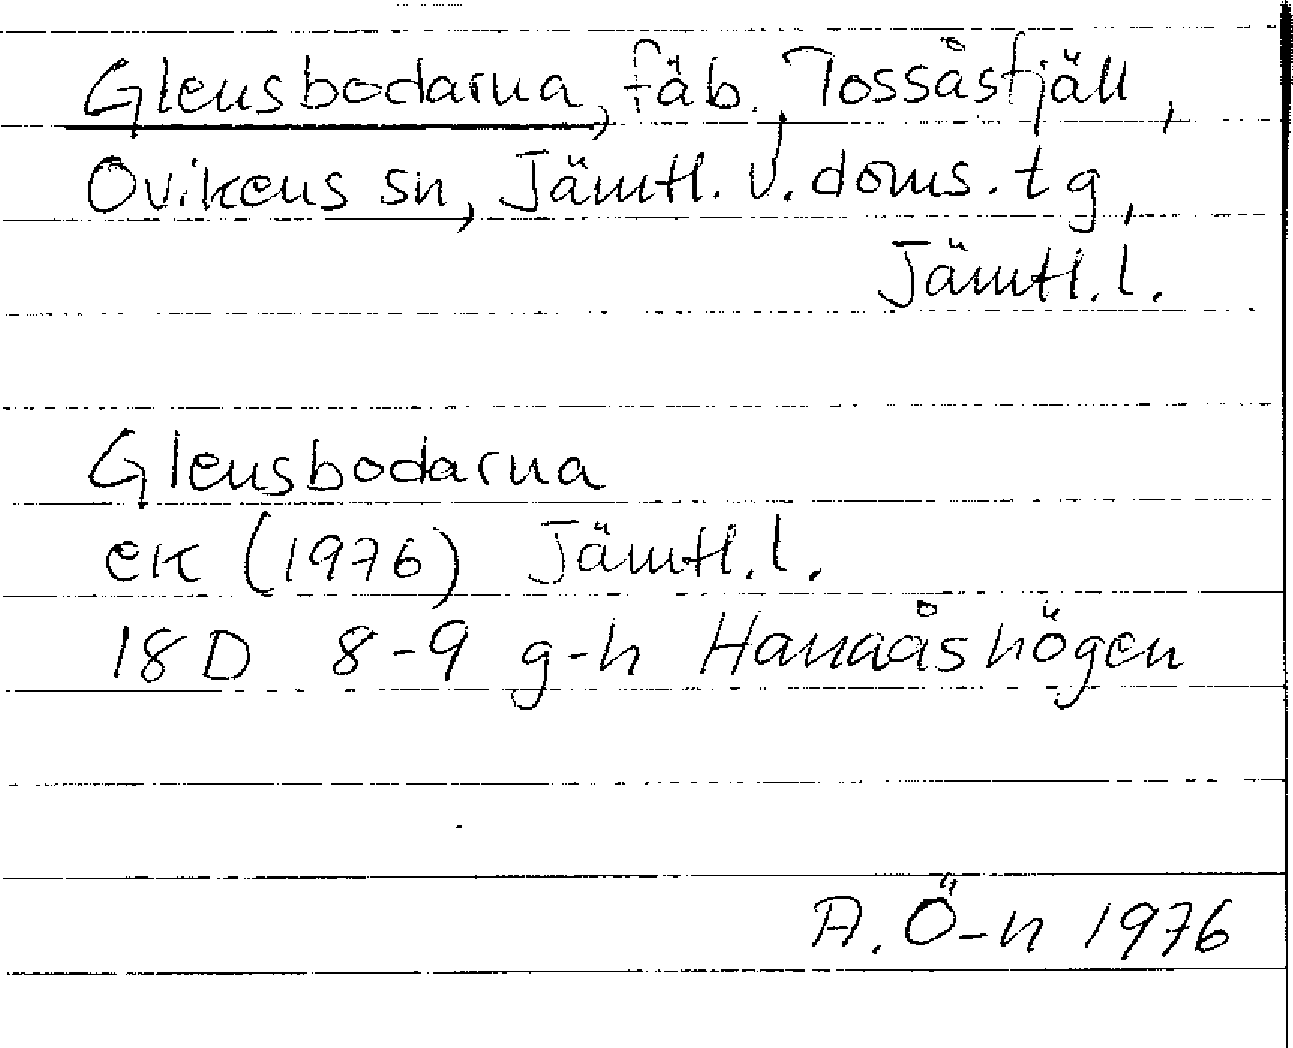 Glensbodarna, fäb. Tossåsfjäll,
Ovikens sn, Jämtl. v. doms. tg,
Jämtl. l.
Glensbodarna
ek (1976) Jämtl. l.
18 D 8-9 g-h Hanaåshögen
A. Ö-n 1976